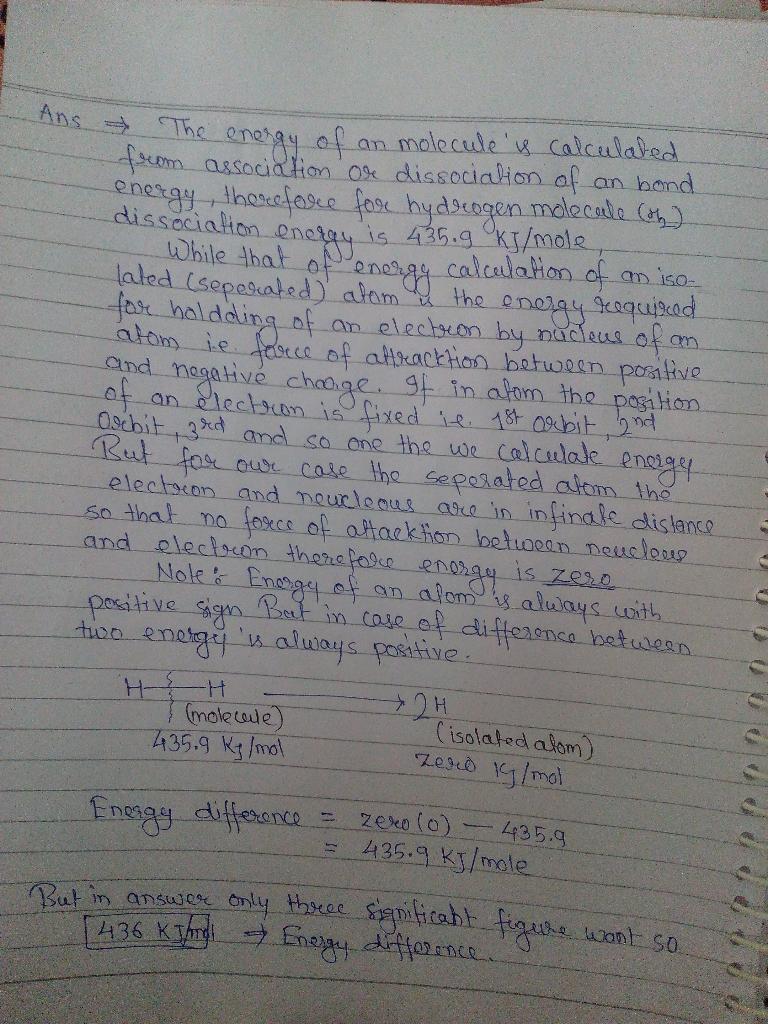 Ans ⇒ The energy of an molecule is calculated
from association or dissociation of an bond
energy, therefore for hydrogen molecule (H2)
dissociation energy is 435.9 KJ/mole,
While that of energy calculation of an iso-
lated (seperated) atom is the energy required
for holdding of an electron by nucleus of an
atom i.e. force of attracktion between positive
and negative charge. If in atom the position
of an electron is fixed i.e. 1st orbit, 2nd
Orbit, 3rd and so one the we calculate energy
But for our case the seperated atom the
electron and neucleous are in infinate distance
so that no force of attacktion between neucleus
and electron therefore energy is zero
Note: Energy of an atom is always with
positive sign But in case of difference between
two energy is always positive.
H―H → 2H
(molecule) (isolated atom)
435.9 KJ/mol zero KJ/mol
Energy difference = zero(0) — 435.9
= 435.9 KJ/mole
But in answer only three significant figure want so
436 KJ/mol ⇒ Energy difference.